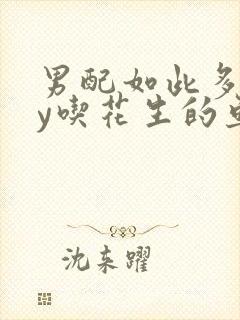 男配如此多
y喫花生的
沈来躍